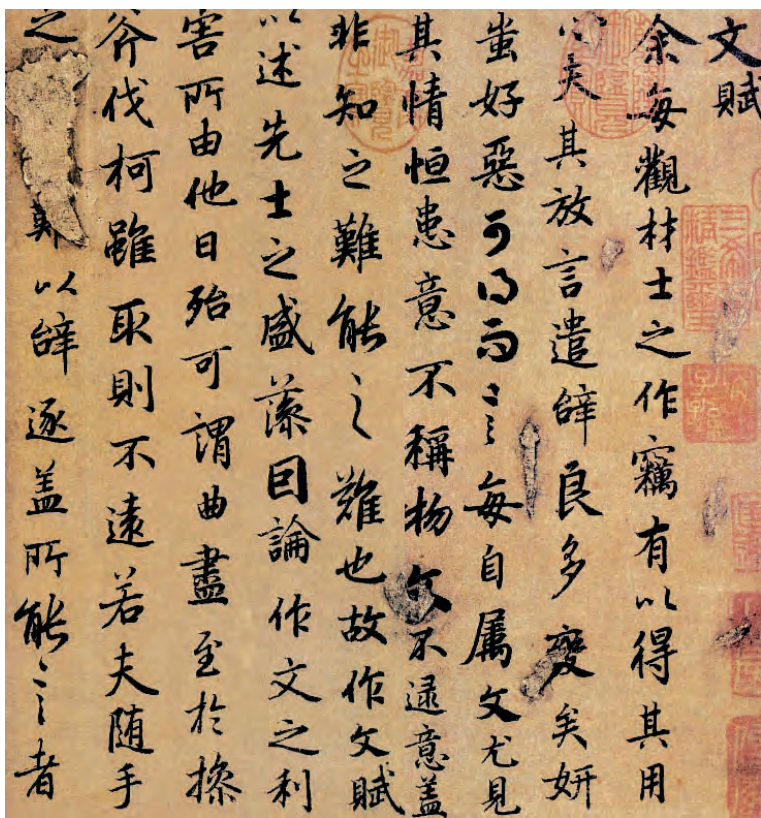 文賦
余每觀材士之作竊有以得其用
心夫其放言遣辭良多變矣妍
蚩好惡可得而言〻每自属文尤見
其情恒患意不稱物文不逮意盖
非知之難能〻之難也故作文賦
以述先士之盛藻因論作文之利
害所由他日殆可謂曲盡至於操
斧伐柯雖取則不遠若夫随手
之 難以辭逐盖所能言〻者